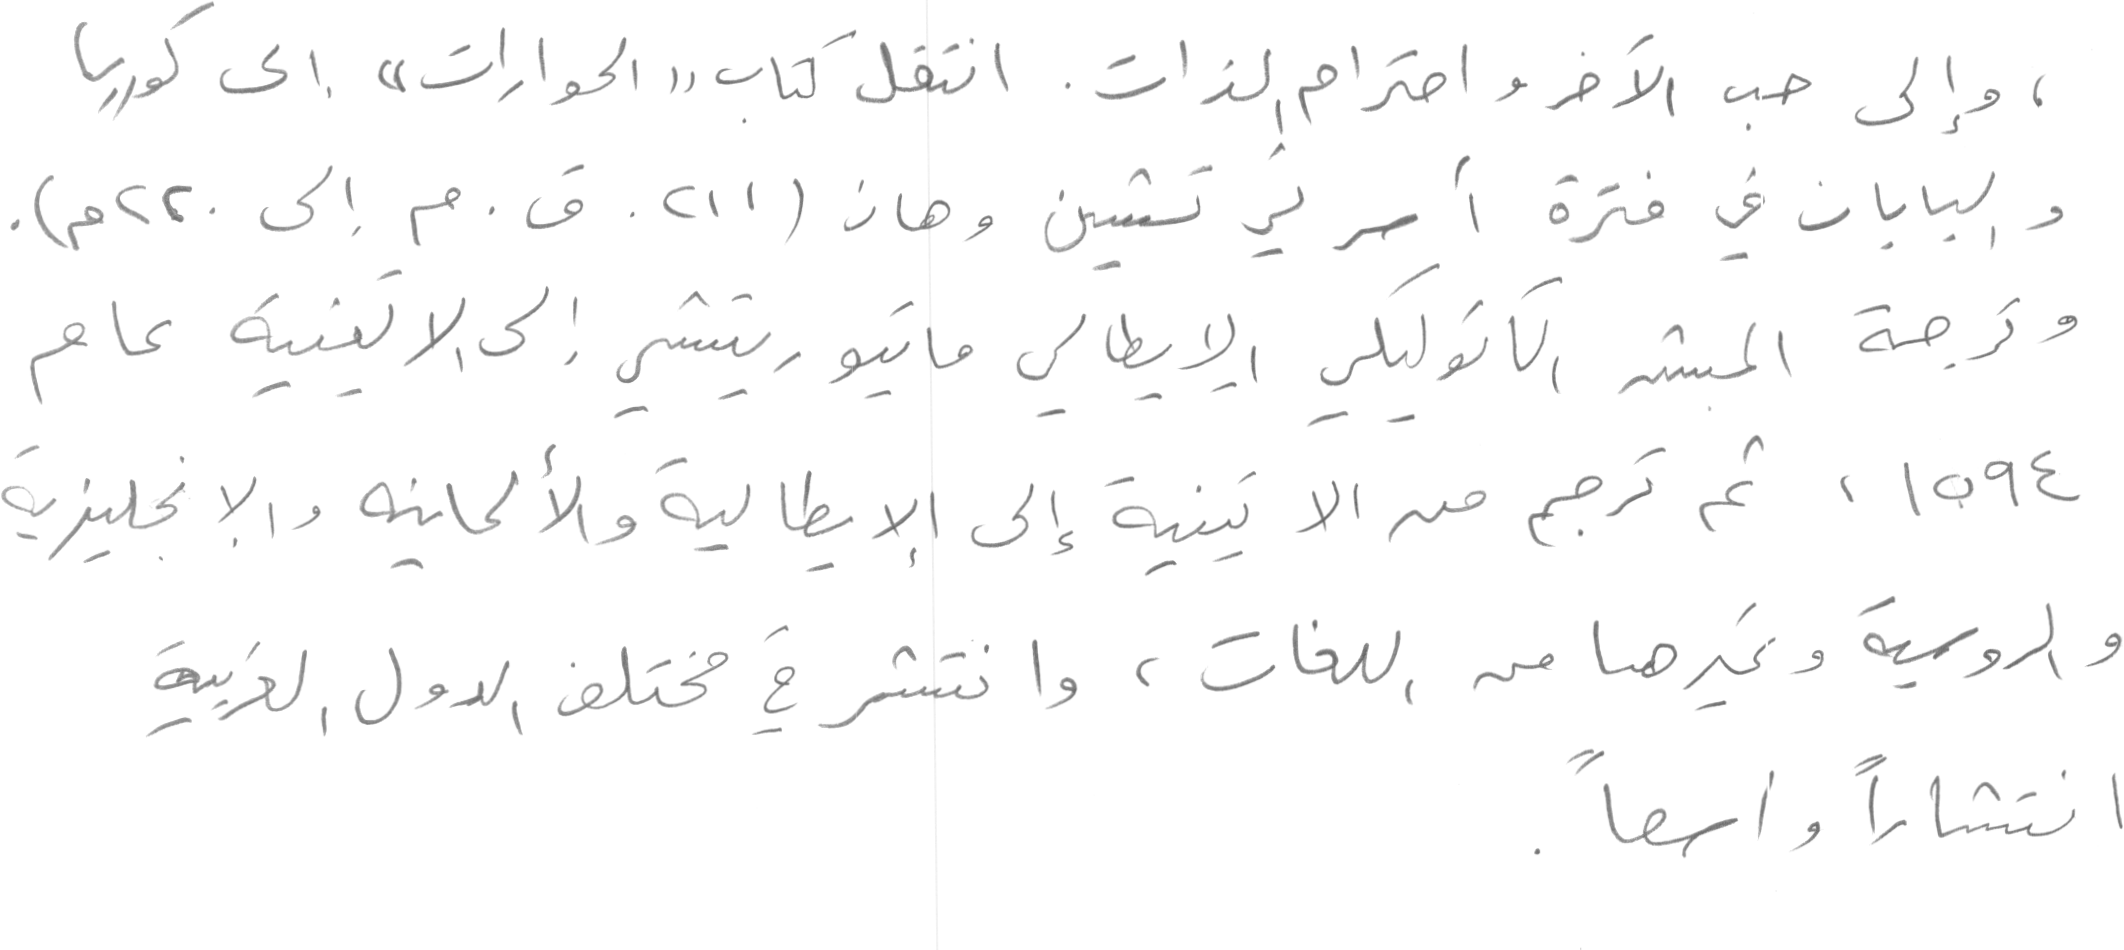 ، وإلى حب الآخر واحترام الذات. انتقل كتاب «الحوارات» الى كوريا
واليابان في فترة أسرتي تشين وهان (٢١١. ق. م إلى ٢٢٠م).
وترجمة المبشر الكاثوليكي الإيطالي ماتيو ريتشي إلى الاتينية عام
١٥٩٤، ثم ترجم من الاتينية إلى الإيطالية والألمانيه والإنجليزية
والروسية وغيرها من اللغات، وانتشر في مختلف الدول الغربية
انتشاراً واسعاً.